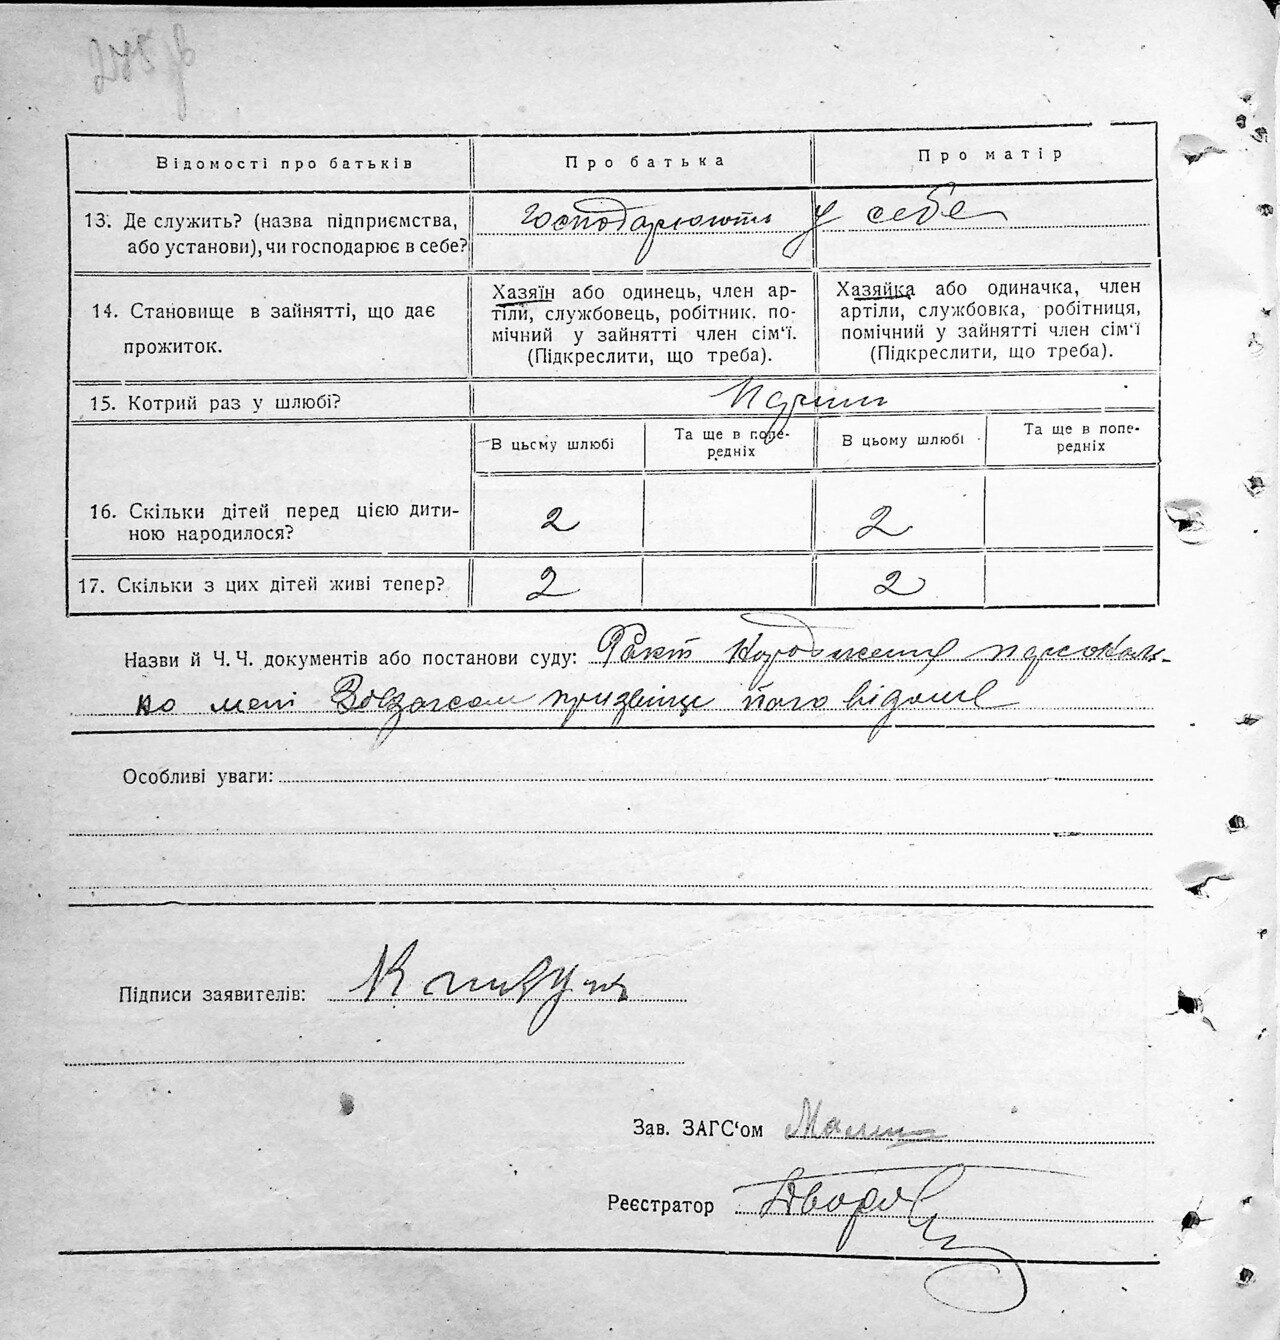 Відомості про батьків
Про батька
Про матір
13. Де служить? (назва підприємства,
або установи), чи господарює в себе?
Господарюють у себе
14. Становище в зайнятті, що дає
прожиток.
Хазяїн або одинець, член ар-
тіли, службовець, робітник. по-
мічний у зайнятті член сім‘ї.
(Підкреслити, що треба).
Хазяйка або одиначка, член
артіли, службовка, робітниця,
помічний у зайнятті член сім‘ї
(Підкреслити, що треба).
15. Котрий раз у шлюбі?
В цьому шлюбі
Та ще в попе-
редніх
В цьому шлюбі
Та ще в попе-
редніх
16. Скільки дітей перед цією дити-
ною народилося?
2
2
17. Скільки з цих дітей живі тепер?
2
2
Назви й Ч. Ч. документів або постанови суду: Факт народження персональ-
но мені прізвище його відоме
Особливі уваги:
Підписи заявителів:
Зав. ЗАГС‘ом
Реєстратор